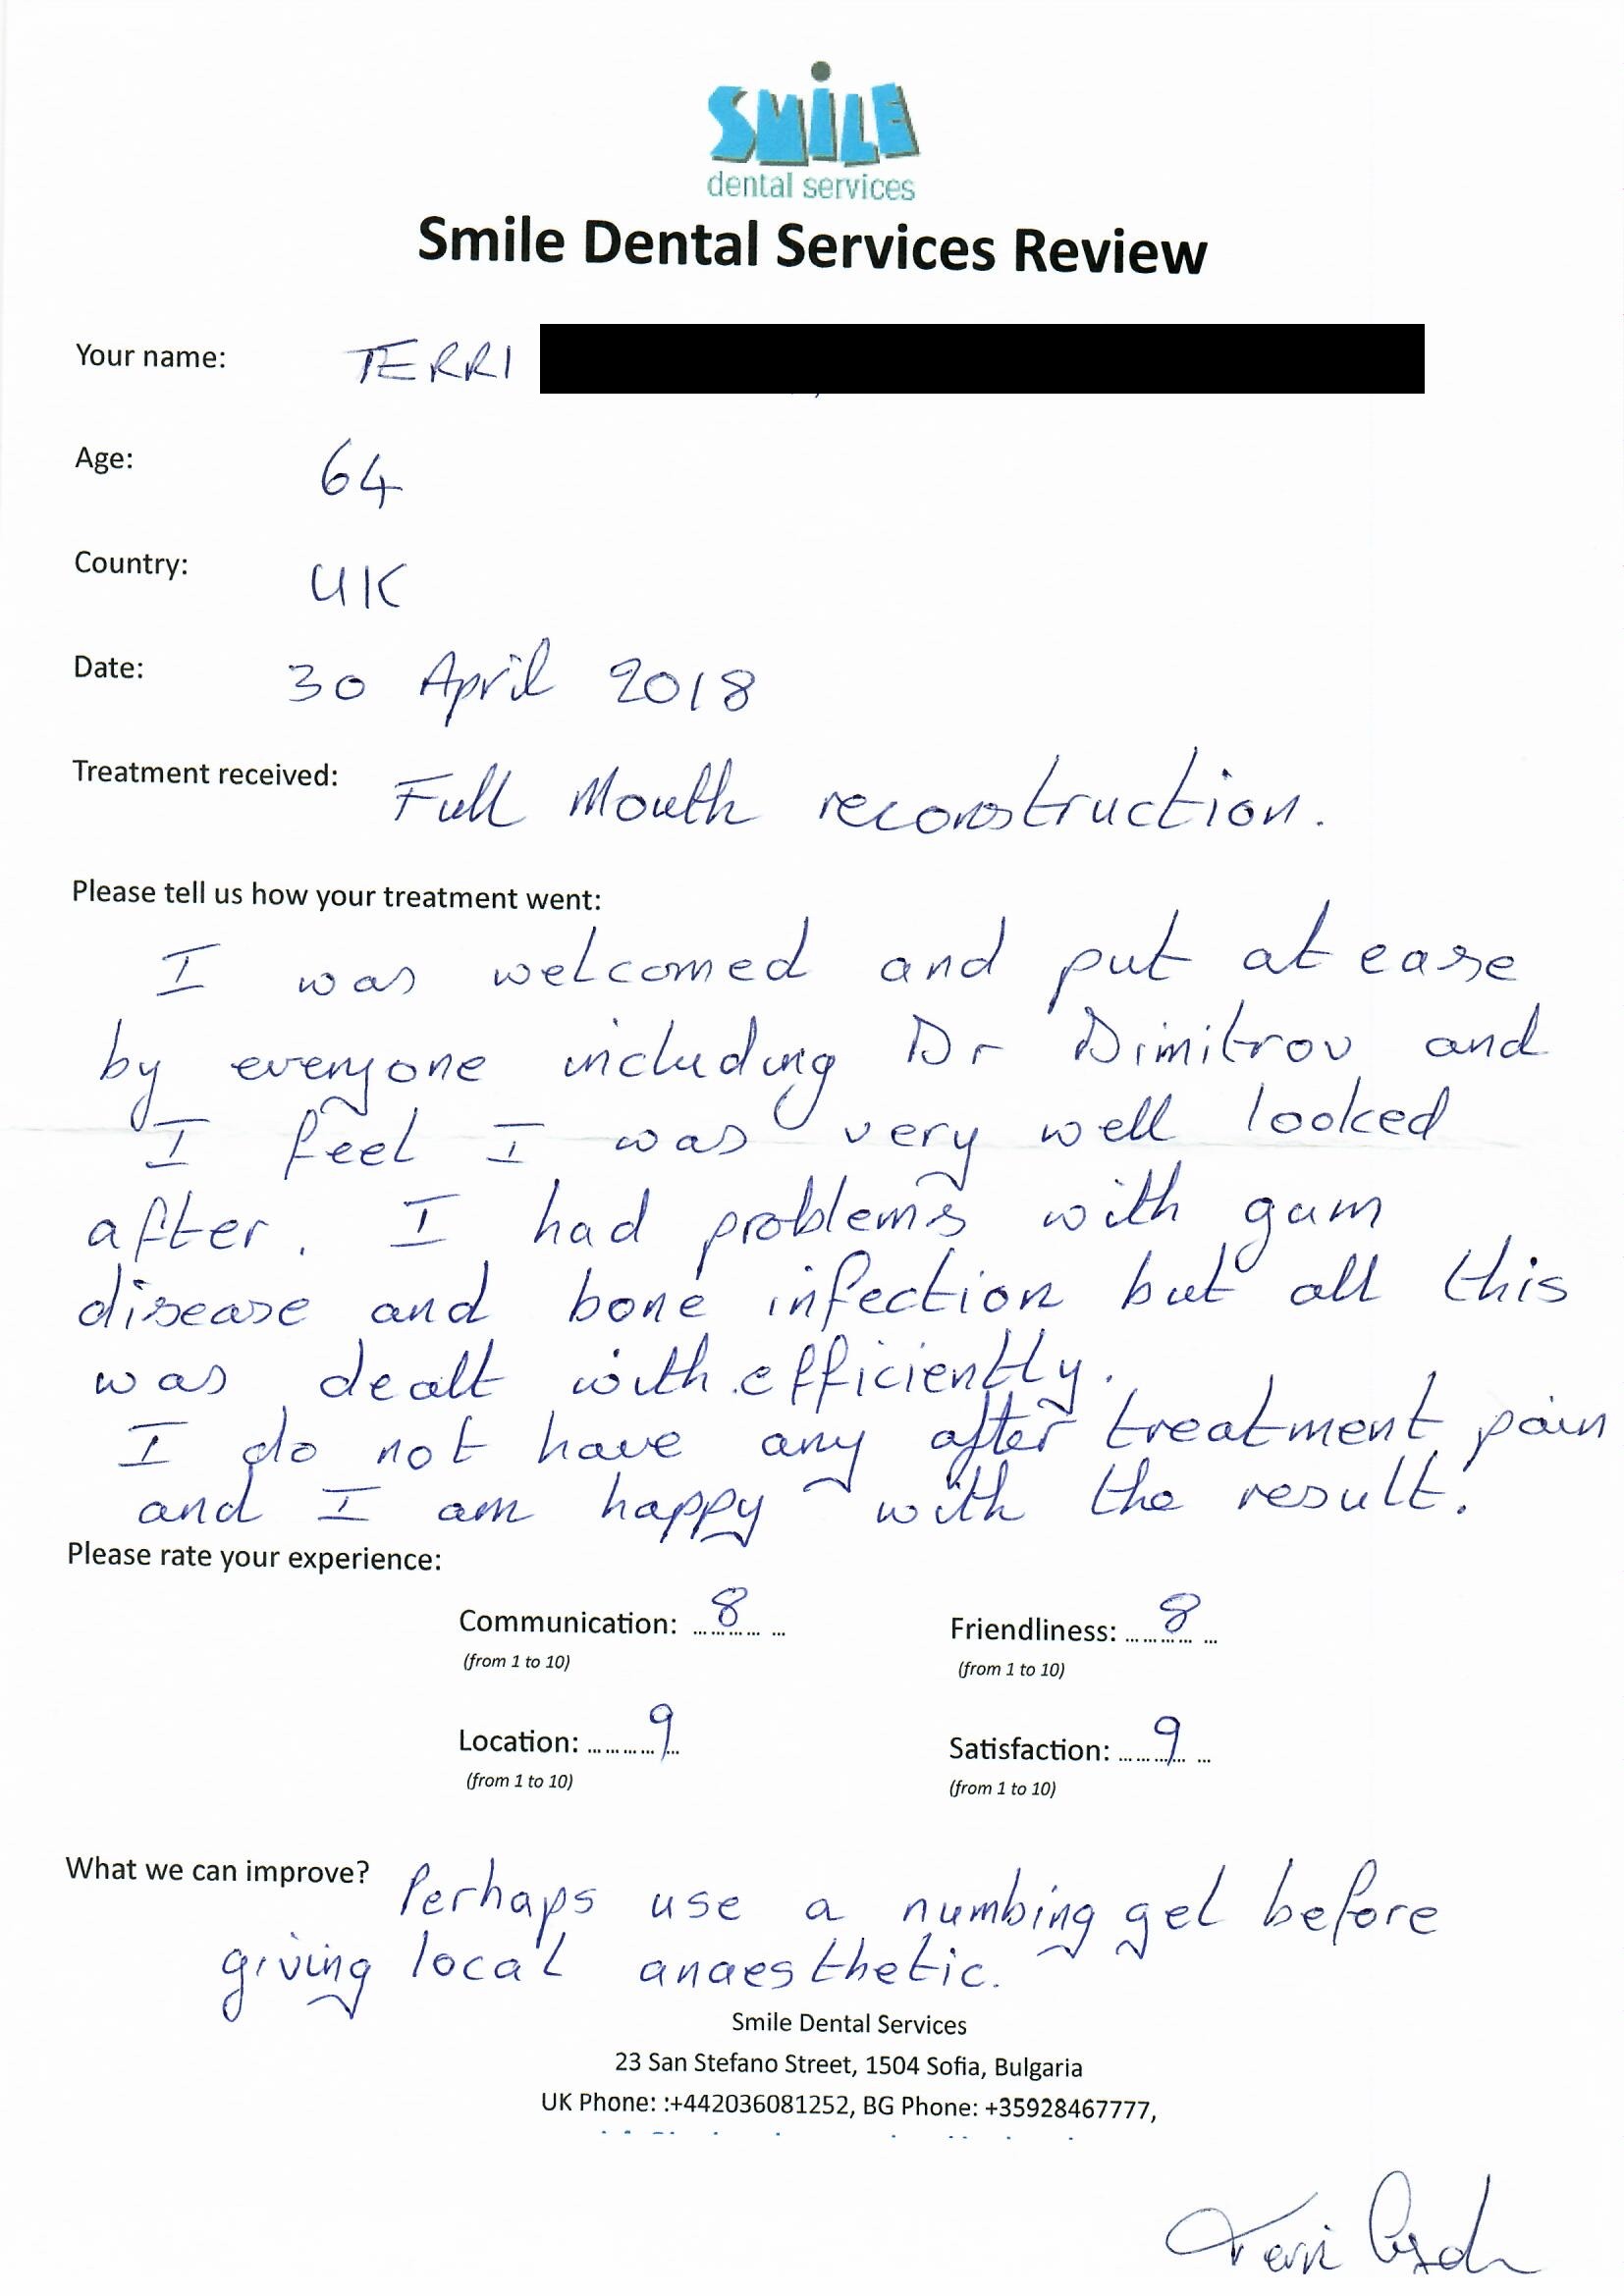 SMiLE
dental services
Smile Dental Services Review
Your name: TERRI
Age: 64
Country: UK
Date: 30 April 2018
Treatment received: Full Mouth reconstruction.
Please tell us how your treatment went:
I was welcomed and put at ease
by everyone including Dr Dimitrov and
I feel I was very well looked
after. I had problems with gum
disease and bone infection but all this
was dealt with efficiently.
I do not have any after treatment pain
and I am happy with the result.
Please rate your experience:
Communication: 8 Friendliness: 8
(from 1 to 10) (from 1 to 10)
Location: 9 Satisfaction: 9
(from 1 to 10) (from 1 to 10)
What we can improve? Perhaps use a numbing gel before
giving local anaesthetic.
Smile Dental Services
23 San Stefano Street, 1504 Sofia, Bulgaria
UK Phone: :+442036081252, BG Phone: +35928467777,
Terri